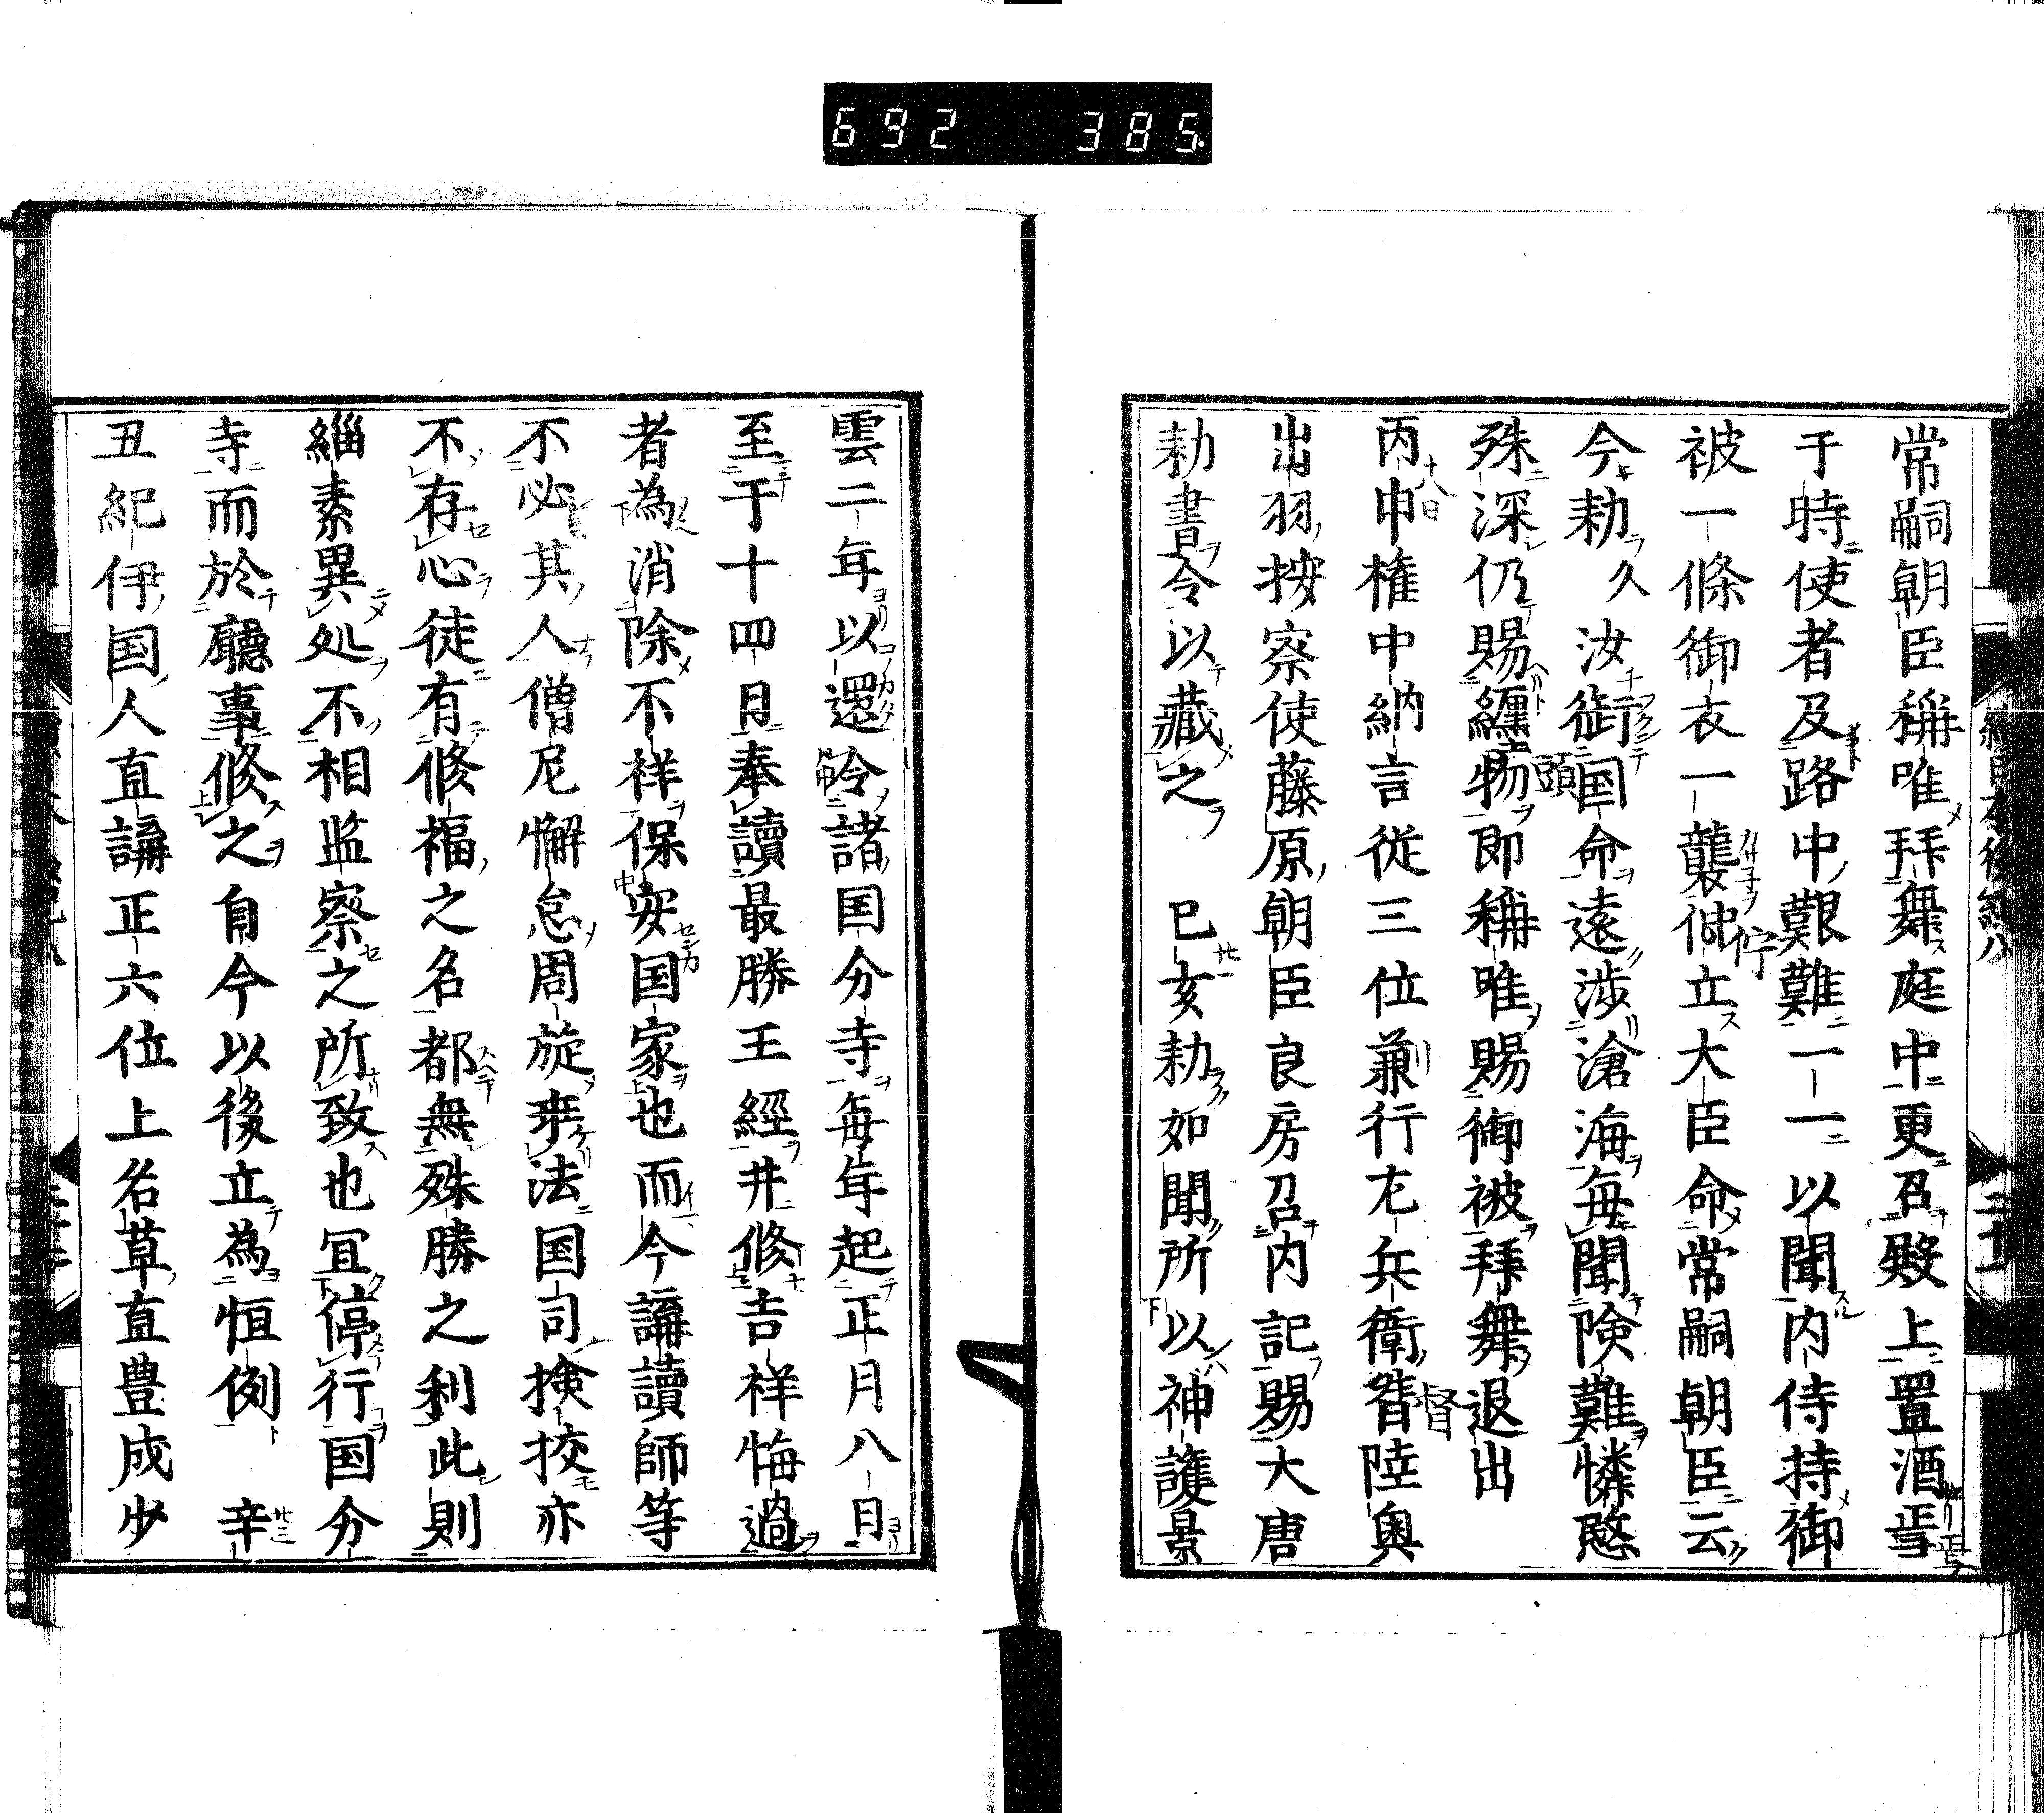 692 385
常嗣朝臣稱唯拜舞庭中更召殿上置酒焉
于時使者及路中艱難一一以聞内侍持御
被一條御衣一襲佇立大臣命常嗣朝臣云
今勅久汝銜国命遠渉滄海毎聞険難憐愍
殊深仍賜纏頭物即稱唯賜御被拜舞退出
丙申権中納言従三位兼行左兵衛督陸奥
出羽按察使藤原朝臣良房召内記賜大唐
勅書令以藏之　己亥勅如聞所以神護景
雲二年以還令諸国分寺毎年起正月八日
至于十四日奉讀最勝王經并修吉祥悔過
者為消除不祥保安国家也而今講讀師等
不必其人僧尼懈怠周旋乖法国司検挍亦
不存心徒有修福之名都無殊勝之利此則
緇素異処不相監察之所致也冝停行国分
寺而於廳事修之自今以後立為恒例　辛
丑紀伊国人直講正六位上名草直豊成少